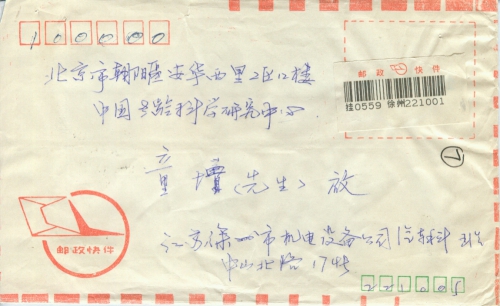 100000
北京市朝阳区安华西里2区12楼
邮政 快件
挂0559 徐州221001
中国 科学研究中心
7
童增(先生) 启
江苏徐州市机电设备公司汽转科
中山北路17号
邮政快件